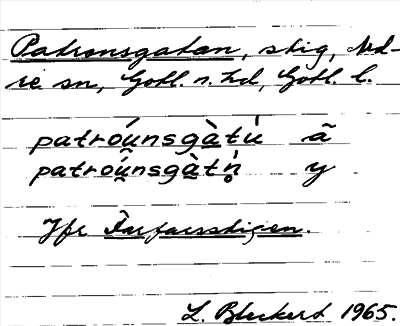 Patronsgatan, stig, Nd-
re sn, Gotl. n. hd, Gotl. l.
patróu̯nsgàtu̇ ã
patróu̯nsgàtn̥ y
Jfr Farfarsstigen.
L. Bleckert 1965.